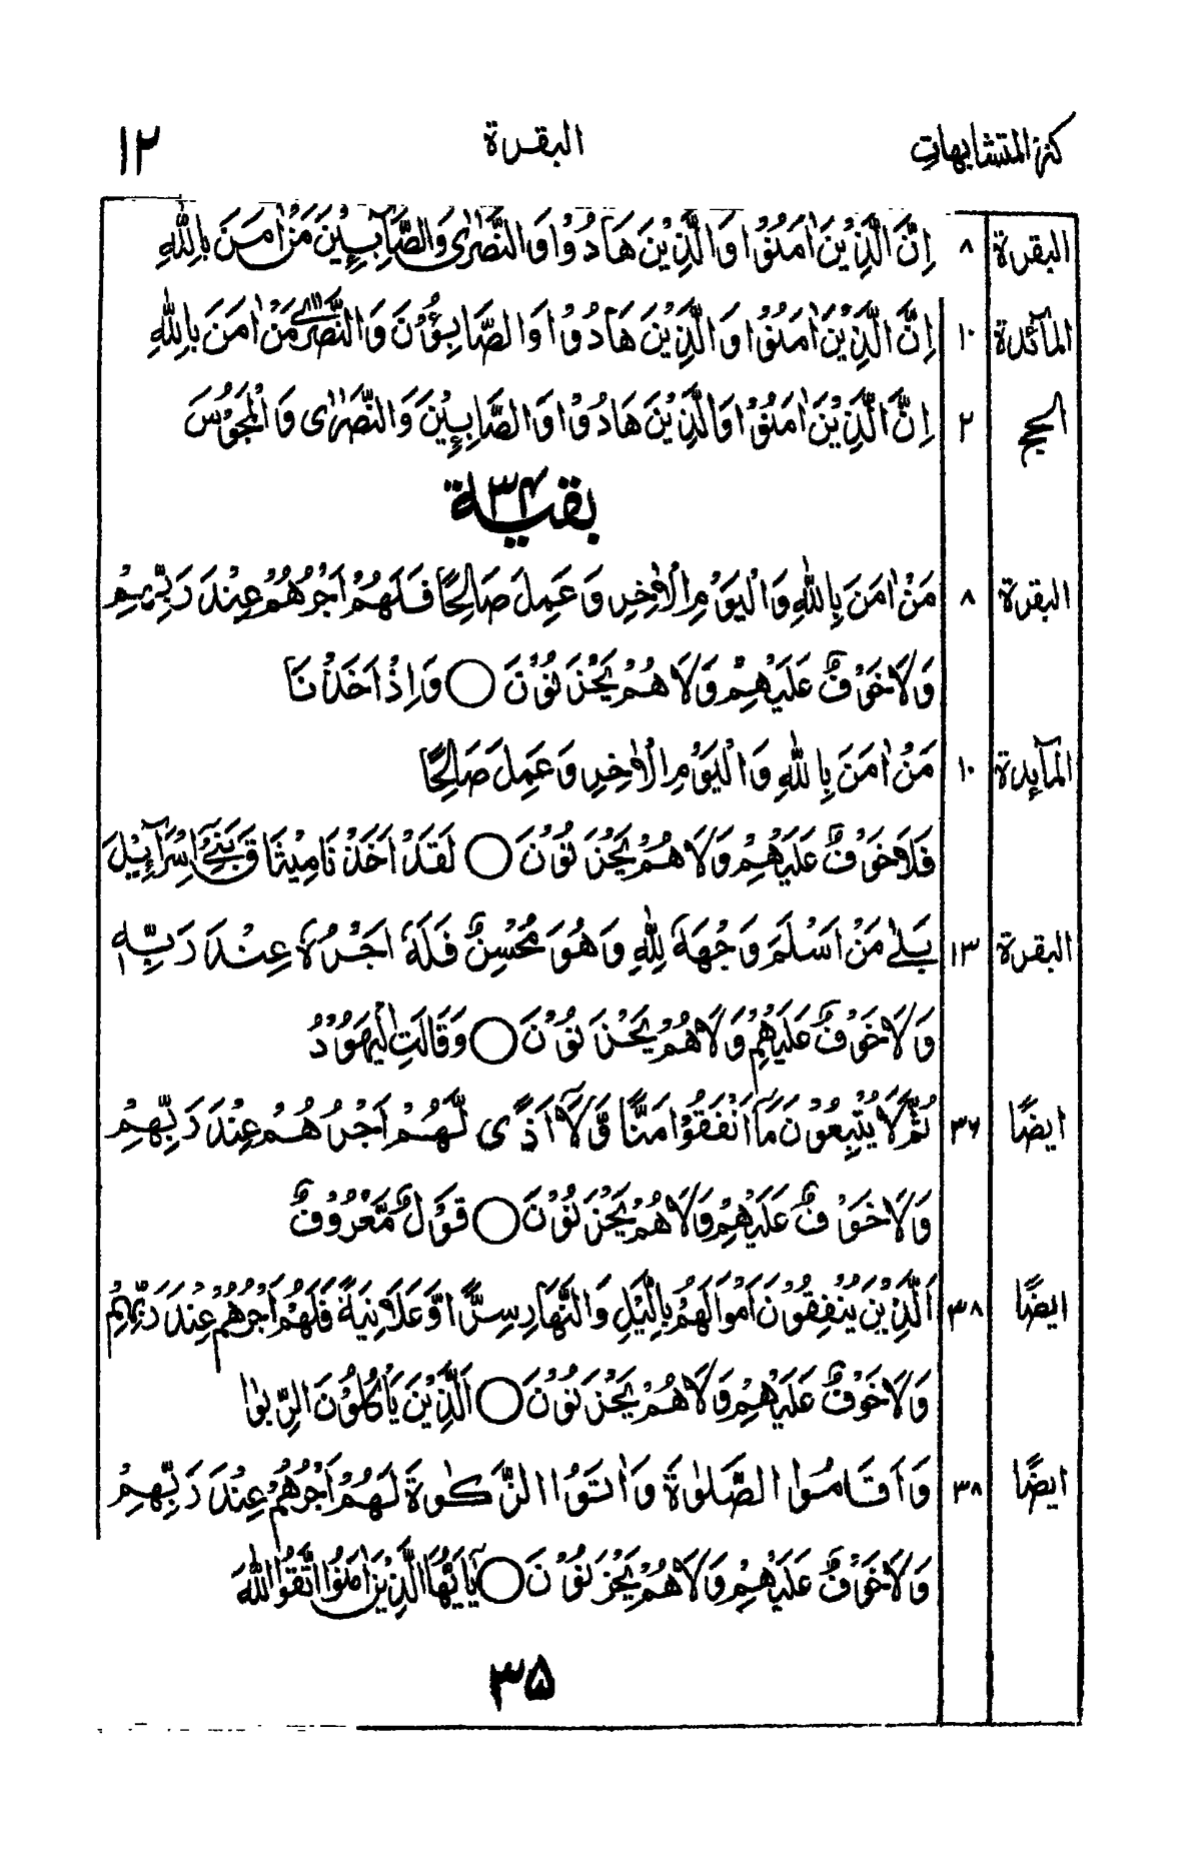 كنز المتشابهات البقرة ١٢
البقرة ٨ اِنَّ الَّذِيْنَ اٰمَنُوْا وَالَّذِيْنَ هَادُوْا وَالنَّصٰرٰى وَالصَّابِـِٕيْنَ مَنْ اٰمَنَ بِاللّٰهِ
المآئدة ١٠ اِنَّ الَّذِيْنَ اٰمَنُوْا وَالَّذِيْنَ هَادُوْا وَالصَّابِئُوْنَ وَالنَّصٰرٰى مَنْ اٰمَنَ بِاللّٰهِ
الحج ٢ اِنَّ الَّذِيْنَ اٰمَنُوْا وَالَّذِيْنَ هَادُوْا وَالصَّابِـِٕيْنَ وَالنَّصٰرٰى وَالْمَجُوْسَ
بقية ٣٤
البقرة ٨ مَنْ اٰمَنَ بِاللّٰهِ وَالْيَوْمِ الْاٰخِرِ وَعَمِلَ صَالِحًا فَلَهُمْ اَجْرُهُمْ عِنْدَ رَبِّهِمْ
وَلَا خَوْفٌ عَلَيْهِمْ وَلَا هُمْ يَحْزَنُوْنَ ○ وَاِذْ اَخَذْنَا
المآئدة ١٠ مَنْ اٰمَنَ بِاللّٰهِ وَالْيَوْمِ الْاٰخِرِ وَعَمِلَ صَالِحًا
فَلَا خَوْفٌ عَلَيْهِمْ وَلَا هُمْ يَحْزَنُوْنَ ○ لَقَدْ اَخَذْنَا مِيْثَاقَ بَنِيْٓ اِسْرَآءِيْلَ
البقرة ١٣ بَلٰى مَنْ اَسْلَمَ وَجْهَهٗ لِلّٰهِ وَهُوَ مُحْسِنٌ فَلَهٗٓ اَجْرُهٗ عِنْدَ رَبِّهٖ
وَلَا خَوْفٌ عَلَيْهِمْ وَلَا هُمْ يَحْزَنُوْنَ ○ وَقَالَتِ الْيَهُوْدُ
ايضًا ٣٦ ثُمَّ لَا يُتْبِعُوْنَ مَآ اَنْفَقُوْا مَنًّا وَّلَآ اَذًى لَّهُمْ اَجْرُهُمْ عِنْدَ رَبِّهِمْ
وَلَا خَوْفٌ عَلَيْهِمْ وَلَا هُمْ يَحْزَنُوْنَ ○ قَوْلٌ مَّعْرُوْفٌ
ايضًا ٣٨ اَلَّذِيْنَ يُنْفِقُوْنَ اَمْوَالَهُمْ بِالَّيْلِ وَالنَّهَارِ سِرًّا وَّعَلَانِيَةً فَلَهُمْ اَجْرُهُمْ عِنْدَ رَبِّهِمْ
وَلَا خَوْفٌ عَلَيْهِمْ وَلَا هُمْ يَحْزَنُوْنَ ○ اَلَّذِيْنَ يَاْكُلُوْنَ الرِّبٰوا
ايضًا ٣٨ وَاَقَامُوا الصَّلٰوةَ وَاٰتَوُا الزَّكٰوةَ لَهُمْ اَجْرُهُمْ عِنْدَ رَبِّهِمْ
وَلَا خَوْفٌ عَلَيْهِمْ وَلَا هُمْ يَحْزَنُوْنَ ○ يٰٓاَيُّهَا الَّذِيْنَ اٰمَنُوا اتَّقُوا اللّٰهَ
٣۵